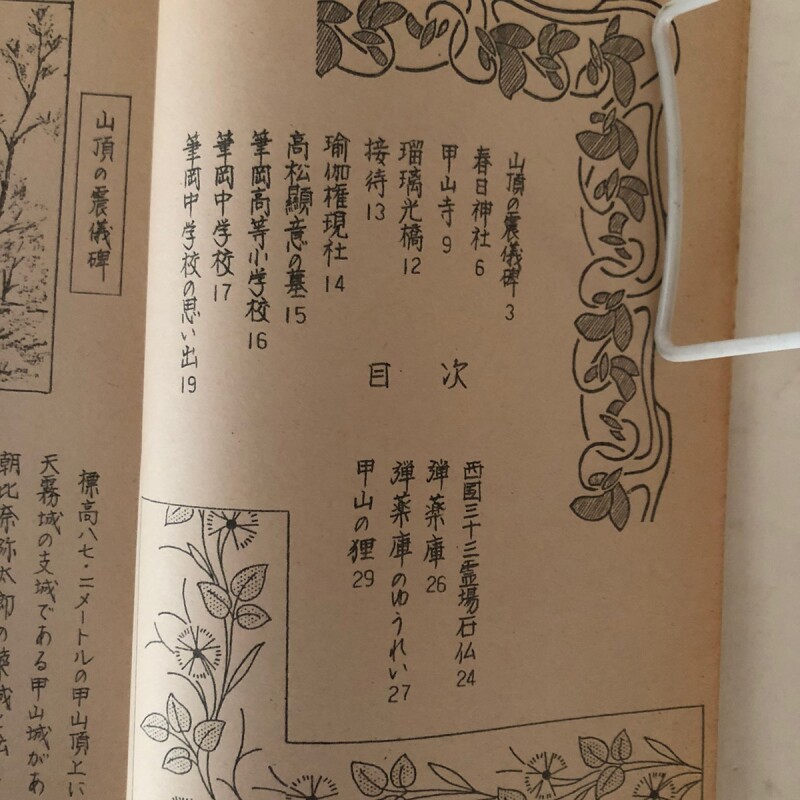 目次
山頂の震儀碑 3
春日神社 6
甲山寺 9
瑠璃光橋 12
接待 13
瑜伽権現社 14
高松顯意の墓 15
筆岡高等小学校 16
筆岡中学校 17
筆岡中学校の思い出 19
西国三十三霊場石仏 24
弾薬庫 26
弾薬庫のゆうれい 27
甲山の狸 29
山頂の震儀碑
標高八七・二メートルの甲山頂上に
天霧城の支城である甲山城があ
朝比奈弥太郎の築城と伝